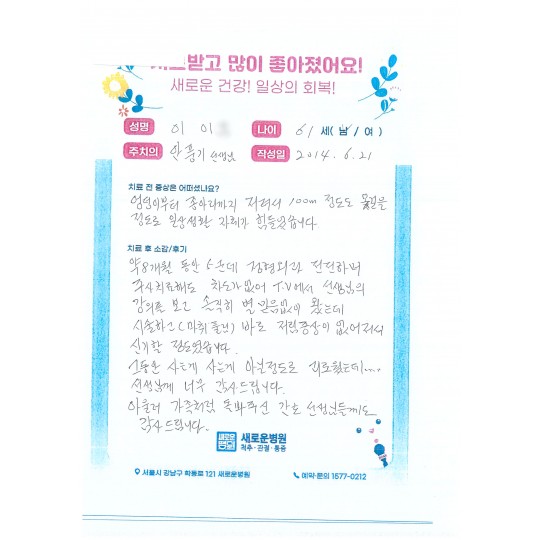 받고 많이 좋아졌어요!
새로운 건강! 일상의 회복!
성명 이 이 나이 61 세( 남 / 여 )
주치의 안풍기 선생님 작성일 2014. 6. 21
치료 전 증상은 어떠셨나요?
엉덩이부터 종아리까지 저려서 100m 정도도 못걸을
정도로 일상생활 자체가 힘들었습니다
치료 후 소감/후기
약8개월 동안 5군데 정형외과 전전하며
주사치료해도 차도가없어 T.V에서 선생님의
강의를 보고 솔직히 별 믿음없이 왔는데
시술하고(마취 풀린) 바로 저림증상이 없어져서
신기할 정도였습니다.
그동안 사는게 사는게 아닐정도로 괴로웠는데....
선생님께 너무 감사드립니다.
아울러 가족처럼 돌봐주신 간호 선생님들께도
감사드립니다.
새로운병원 새로운병원
척추·관절·통증
서울시 강남구 학동로 121 새로운병원 예약·문의 1577-0212